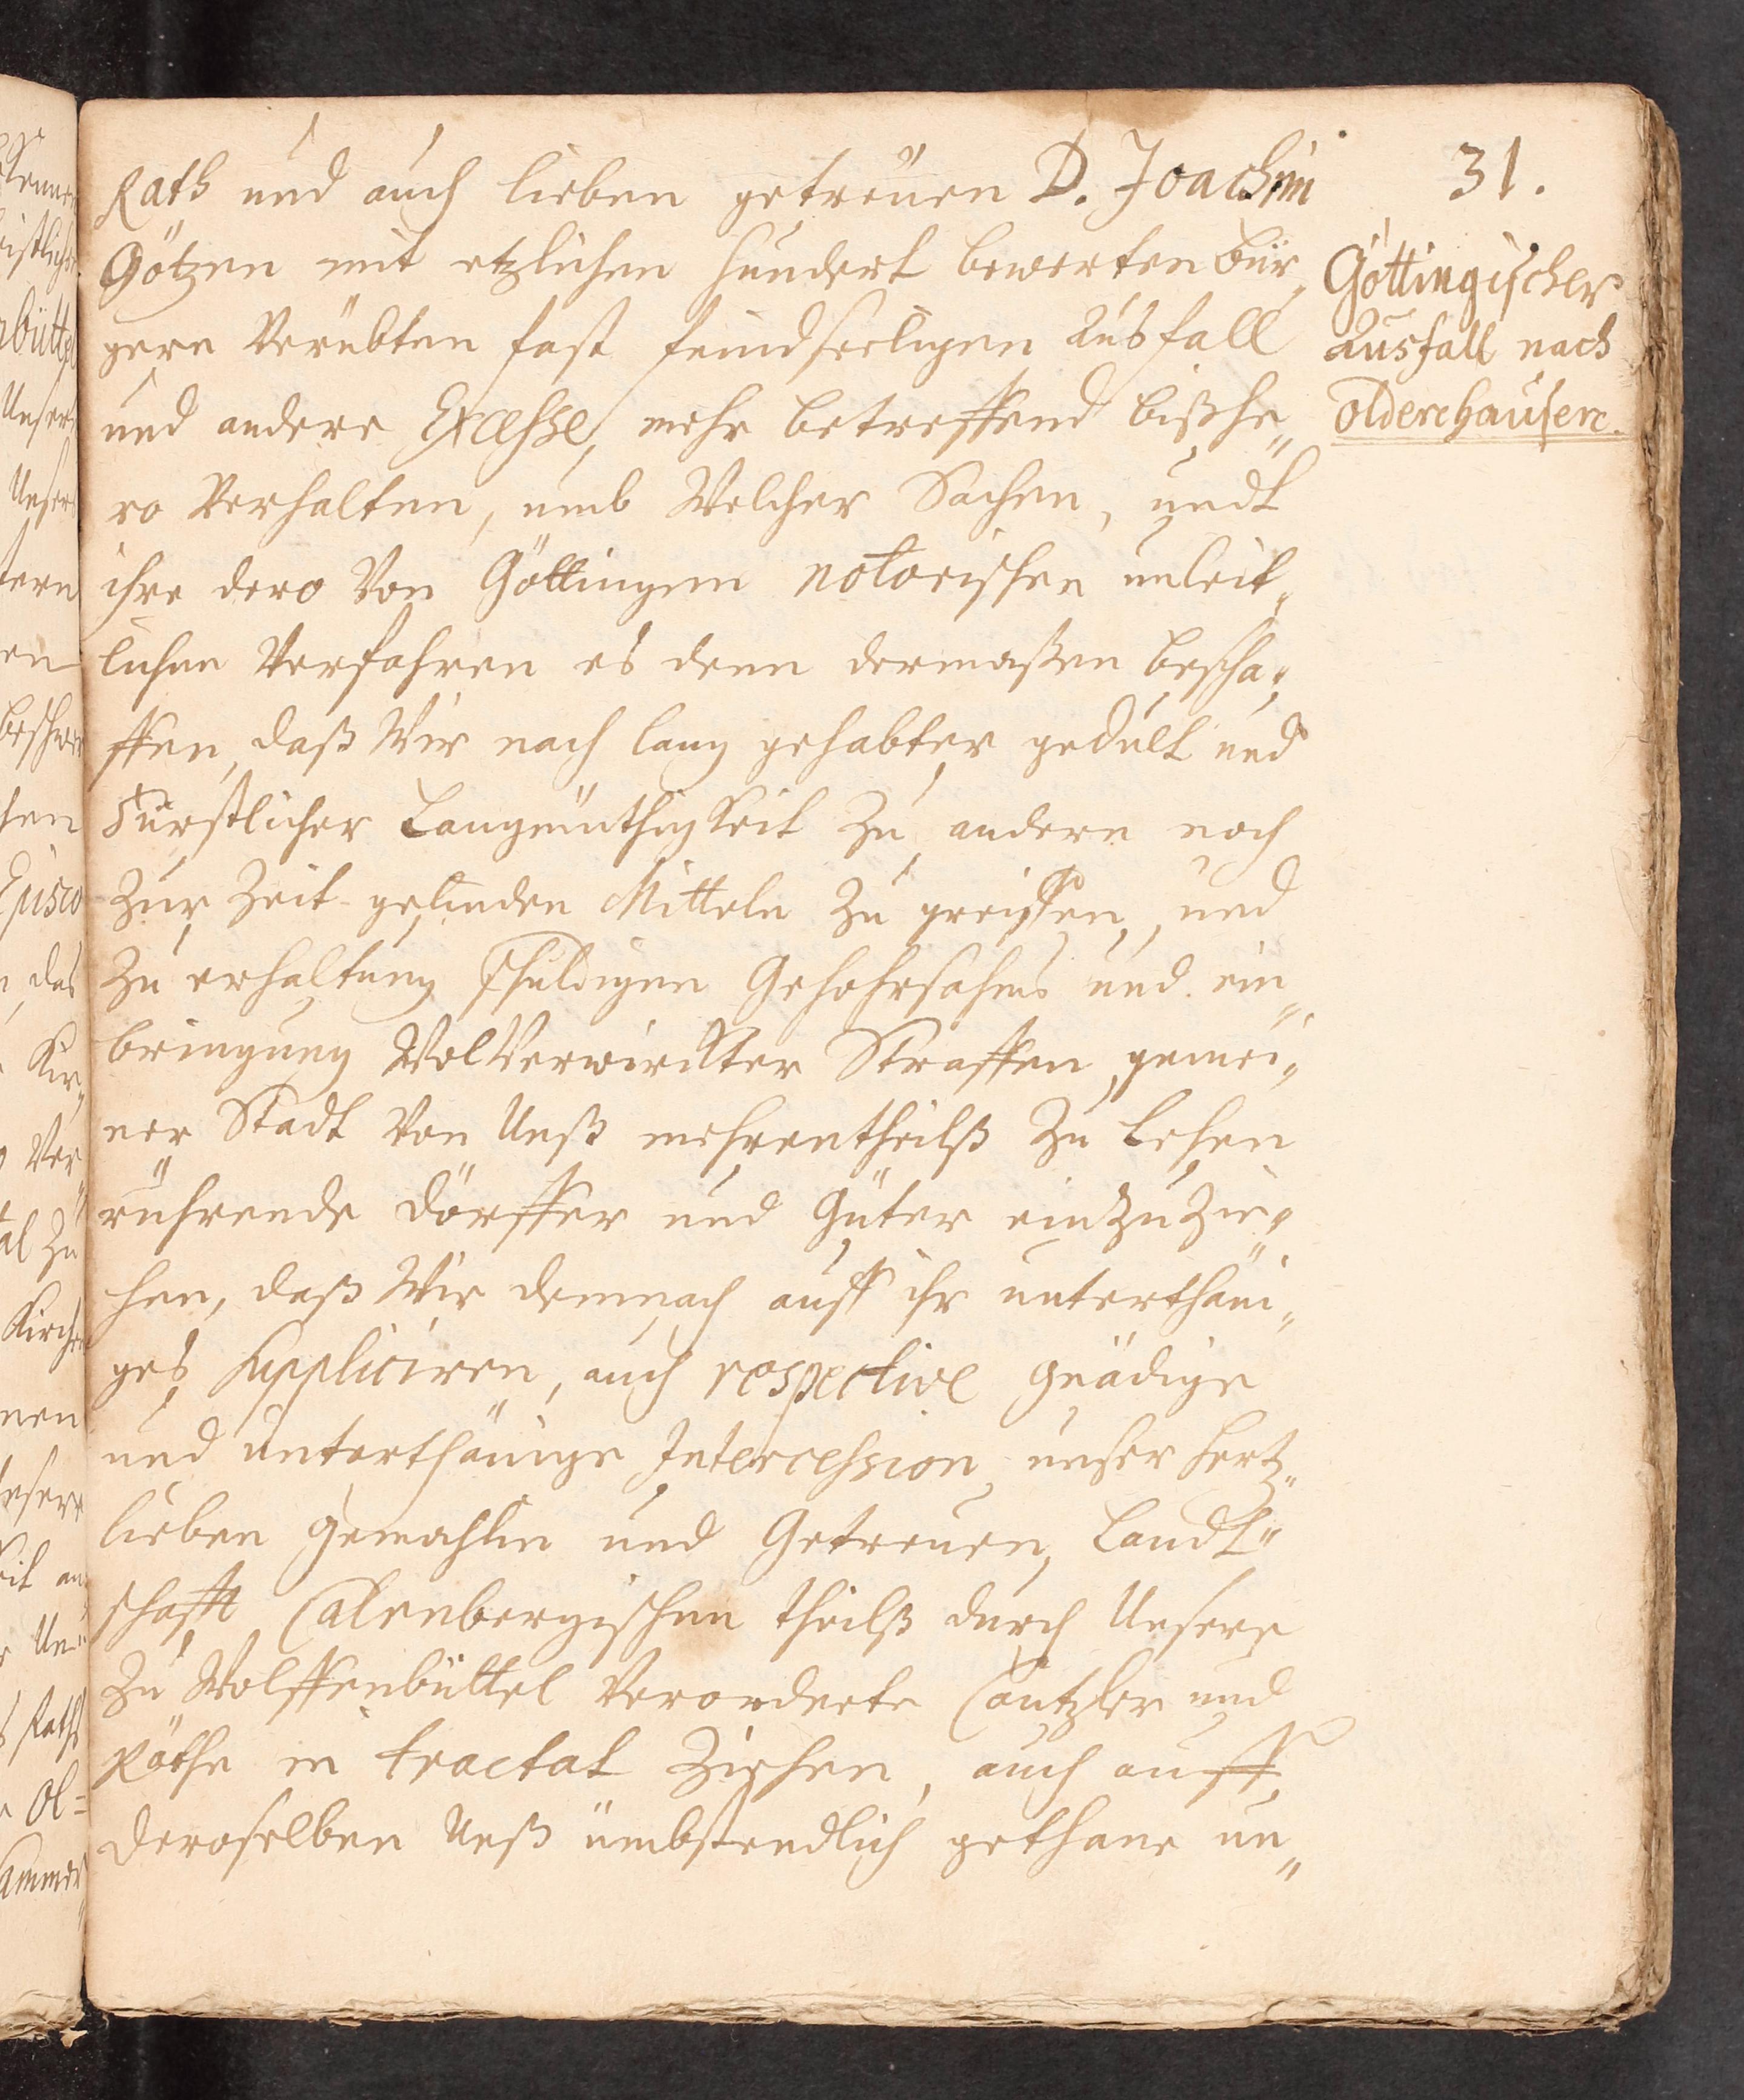 31.
Rath und auch lieben getreüen D. Joachim
Götzen mit etzlichen hundert bewerten Bür„
gern Verübten fast feindseeligen Ausfall
und andere Excesse, mehr betreffend bißhe„
ro Verhalten, umb Welcher Sachen, undt
ihre dero Von Göttingen notorischen unleit„
lichen Verfahren es denn dermaßen bescha„
ffen, daß Wir nach lang gehabter gedult und
Fürstlicher Langmüthigkeit Zu andern noch
Zur Zeit gelinden Mitteln Zu greiffen, und
Zu erhaltung schuldigen Gehohrsahms und ein„
bringung WolVerwirckter Straffen, gemei„
ner Stadt Von Unß mehrentheilß Zu Lehen
rührende Dörffer und Güter einzuZie„
hen, daß Wir demnach auff ihr unterthäni„
ges suppliciren, auch respective gnädige
und unterthänige Intercession, unser hertz„
lieben Gemahlin und Getreuen, Landt„
schafft Calenbergischen theilß durch Unsere
Zu Wolffenbüttel Verorderte Cantzler und
Räthe in tractat Ziehen, auch auff
deroselben Unß ümbstendlich gethane un„
Göttingischer
Ausfall nach
oldershausen.